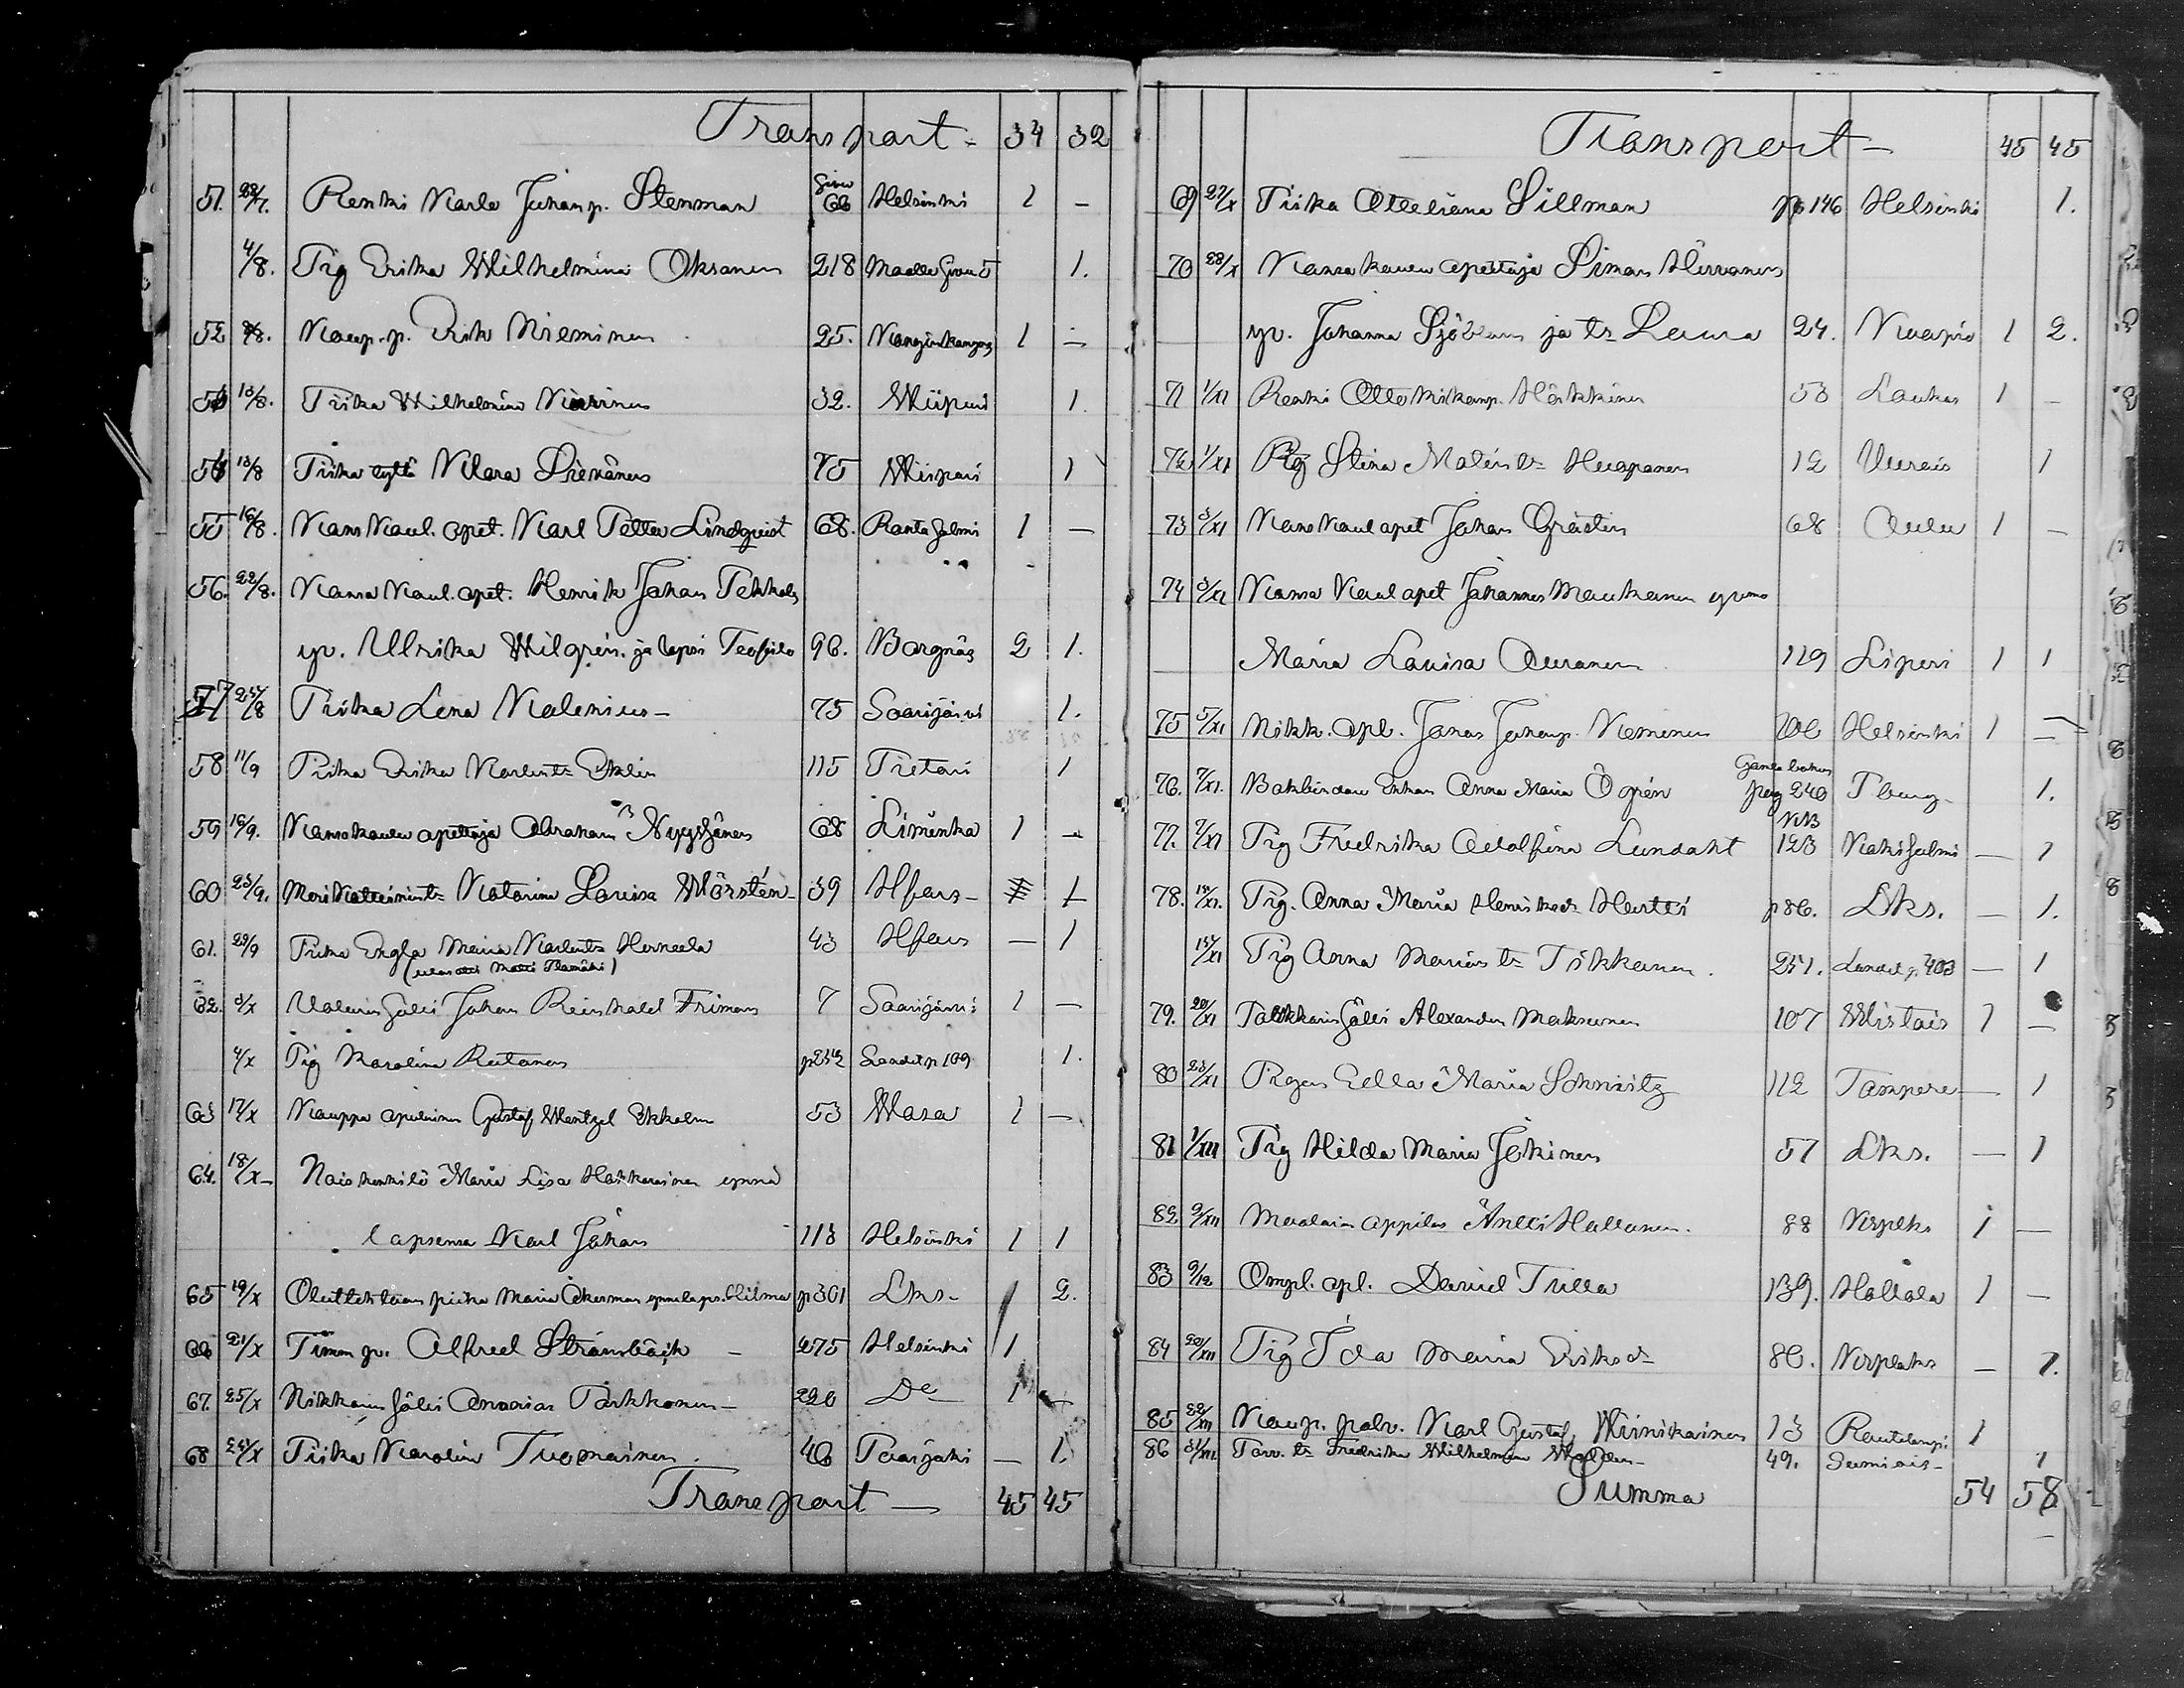 Transport - 34 32
51. 28/7. Renki Karlo Juhanp. Stenman Sivu 66 Helsinki 1 -
4/8. Pig Erika Wilhelmina Oksanen 218 Maalle Sivu 5 1.
52 8/8. Kaup. p. Erik Nieminen 25. Kangaskangas 1 -
53 13/8. Piika Wilhelmina Niinen 32. Wiipuri 1.
54 13/8 Piika tyttö Klara Piekänen 75 Wiipuri 1
55 16/8. Kans Kaul. opet. Karl Petter Lindqvist 68. Rantasalmi 1 -
56. 22/8. Kansa Kaul. opet. Henrik Johan Pekkola
yv. Ulrika Wilgrén. ja lapsi Teofilo 96. Borgnäs 2 1.
57 25/8 Piika Lena Kalenius - 75 Saarijärvi 1.
58 11/9 Piika Erika Karlintr Eklin 115 Pietari 1
59 16/9. Kansakoulu opettaja Abraham Nyyssönen 68 Liminka 1 -
60 23/9. Meri Katterinintr Katarina Lovisa Wårstén - 39 Hfors - 1
61. 29/9 Piika Engla Maria Karlintr Herneela 43 Hfors - 1
62. 3/X Valurin Sälli Johan Reinhold Friman 7 Saarijärvi 1 -
4/X Pig Karolina Rutanen p232 Landet p 109 1.
63 17/X Kauppa apulainen Gustaf Wentzel Ekholm 53 Wasa 1 -
64. 18/X - Nais henkilö Maria Lisa Hakkarainen ynnä
lapsensa Karl Johan 113 Helsinki 1 1
65 19/X piika Maria Åkerman ynnä laps. Hilma p301 Lks - 2.
66 21/X Timm p. Alfred Strömbäck - 275 Helsinki 1
67. 25/X Nikkarin Sälli Ananias Parkkonen - 220 Do 1 -
68 25/X Piika Karolina Tuomainen. 46 Pääjärvi - 1.
Transport - 45 45
Transport - 45 45
69 27/X Piika Otteliana Sillman p 146 Helsinki 1.
70 28/X Kansa koulu opettaja Simon Hirvonen
yv. Johanna Sjöblom ja tr Laura 24. Kuopio 1 2.
71 1/XI Renki Otto Mikkonp. Hökkinen 53 Laukaa 1 -
72 1/XI Pig Stina Matintr Huopanen 12 Uurais 1
73 3/XI Kans Kaul opet Johan Gråsten 68 Oulu 1 -
74 3/XI Kansa Kaul opet Johannes Maukonen ynnä
Maria Lovisa Auranen 119 Liperi 1 1
75 5/XI Nikk. opl. Jonas Johanp. Nieminen 202 Helsinki 1 -
76. 7/XI. Bokbindare Enkan Anna Maria Ögrén Gamla boken pag 240 Tburg - 1.
77. 7/XI Pig Fredrika Adolfina Lundaht NB 123 Käkisalmi - 1
78. 14/XI. Pig. Anna Maria Henriksdr Hertti p 86. Lks. - 1.
15/XI Pig Anna Mariastr Tikkanen. 251. Landet p. 403 - 1
79. 20/XI Sälli Alexander Maksunen 107 Wistais 1 -
80 23/XI Pigan Edla Maria Schmidtz 112 Tampere - 1
81 1/XII Pig Hilda Maria Jokinen 57 Lks. - 1
82 9/XII Maalarin oppilas Antti Hallonen. 88 Krplks 1 -
83 9/12 Ompl. opl. David Tulla 139. Hollola 1 -
84 20/XII Pig Ida Maria Eriksd - 80. Krplaks - 1.
85 22/XII Kaup. palv. Karl Gustaf Wiinikainen 13 Rautalampi 1
86 31/XII. Torv. tr Fredrika Wilhelmina - 49. Sumiais - 1
Summa 54 58